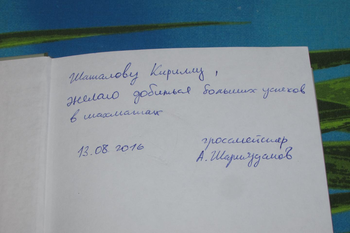 Шаталову Кириллу,
желаю добиться больших успехов
в шахматах
13.08 2016 гроссмейстер
А. Шариязданов